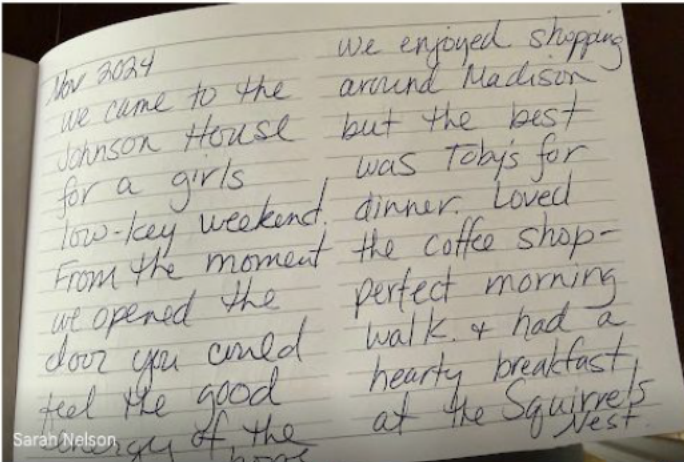 Nov 2024
we came to the
Johnson House
for a girls
low-key weekend.
From the moment
we opened the
door you could
feel the good
energy of the
we enjoyed shopping
around Madison
but the best
was Toby's for
dinner. Loved
the coffee shop-
perfect morning
walk. & had a
hearty breakfast
at the Squirrels
Nest.
Sarah Nelson